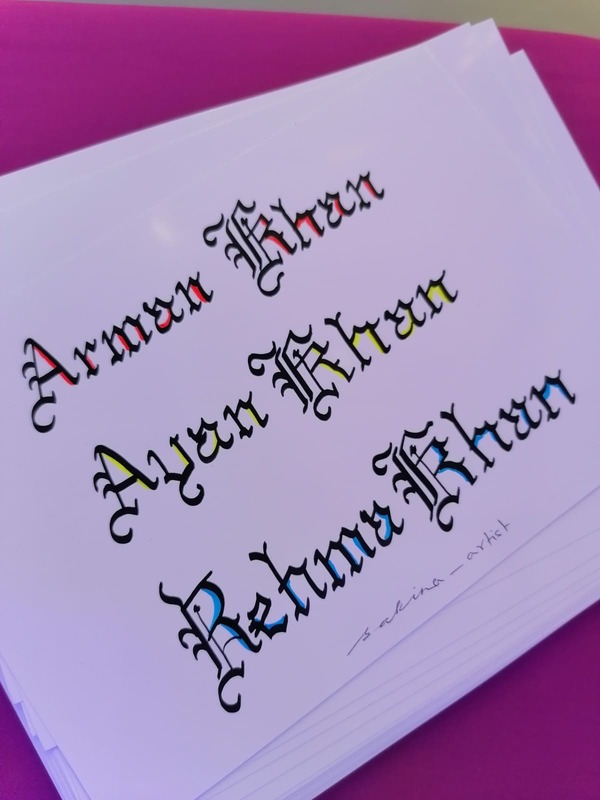 Arman Khan
Ayan Khan
Rehma Khan
sakina_artist